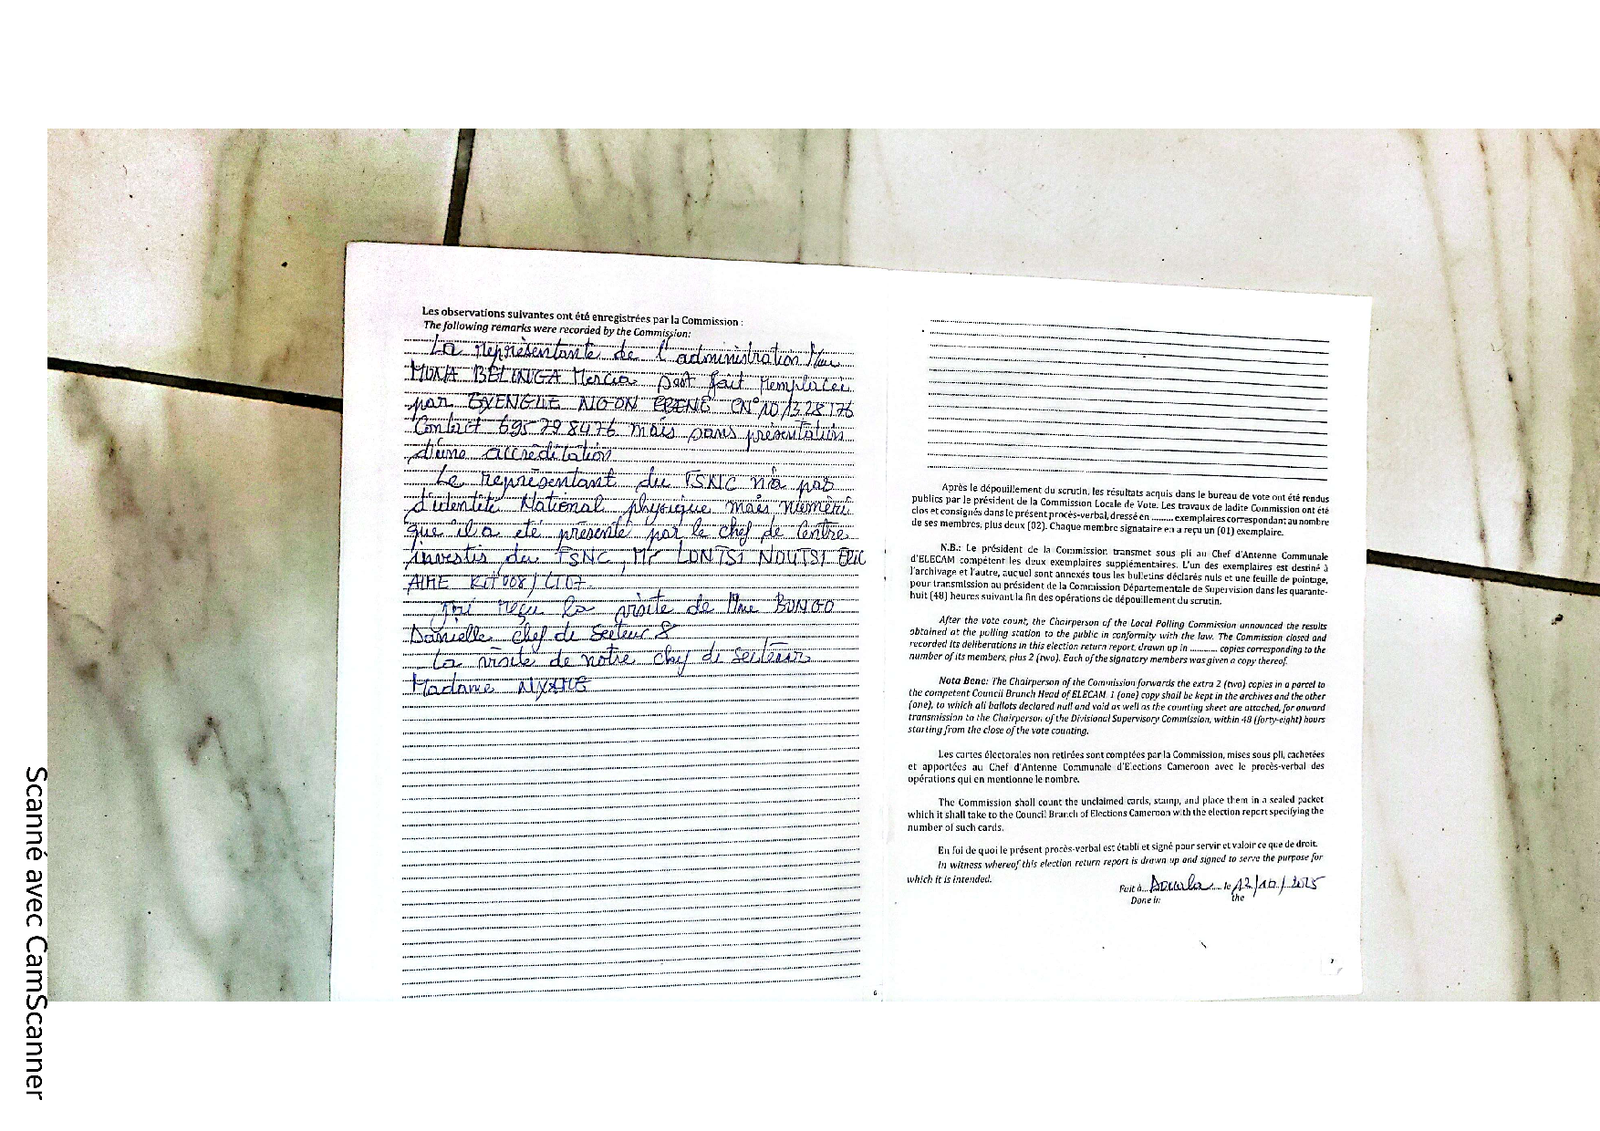 Les observations suivantes ont été enregistrées par la Commission :
The following remarks were recorded by the Commission:
La représentante de l'administration Mme
MUNA BELINGA Mercia s'est fait remplacée
par NGON EBENE CN°
Contact 695 79 84 76 mais sans présentation
d'une accréditation
Le représentant du FSNC n'a pas
d'identité National physique mais numéri
que il a été présenté par le chef de centre
investis du FSNC, Mr LONTSI NOUTSI ERIC
AIME
J'ai reçu la visite de Mme BUNGO
Danielle chef de secteur 8
La visite de notre chef de secteur
Madame
6
Après le dépouillement du scrutin, les résultats acquis dans le bureau de vote ont été rendus
publics par le président de la Commission Locale de Vote. Les travaux de ladite Commission ont été
clos et consignés dans le présent procès-verbal, dressé en ......... exemplaires correspondant au nombre
de ses membres, plus deux (02). Chaque membre signataire en a reçu un (01) exemplaire.
N.B.: Le président de la Commission transmet sous pli au Chef d'Antenne Communale
d'ELECAM compétent les deux exemplaires supplémentaires. L'un des exemplaires est destiné à
l'archivage et l'autre, auquel sont annexés tous les bulletins déclarés nuls et une feuille de pointage,
pour transmission au président de la Commission Départementale de Supervision dans les quarante-
huit (48) heures suivant la fin des opérations de dépouillement du scrutin.
After the vote count, the Chairperson of the Local Polling Commission announced the results
obtained at the polling station to the public in conformity with the law. The Commission closed and
recorded its deliberations in this election return report, drawn up in ........... copies corresponding to the
number of its members, plus 2 (two). Each of the signatory members was given a copy thereof.
Nota Bene: The Chairperson of the Commission forwards the extra 2 (two) copies in a parcel to
the competent Council Branch Head of ELECAM. 1 (one) copy shall be kept in the archives and the other
(one), to which all ballots declared null and void as well as the counting sheet are attached, for onward
transmission to the Chairperson of the Divisional Supervisory Commission, within 48 (forty-eight) hours
starting from the close of the vote counting.
Les cartes électorales non retirées sont comptées par la Commission, mises sous pli, cachetées
et apportées au Chef d'Antenne Communale d'Elections Cameroon avec le procès-verbal des
opérations qui en mentionne le nombre.
The Commission shall count the unclaimed cards, stamp, and place them in a sealed packet
which it shall take to the Council Branch of Elections Cameroon with the election report specifying the
number of such cards.
En foi de quoi le présent procès-verbal est établi et signé pour servir et valoir ce que de droit.
In witness whereof this election return report is drawn up and signed to serve the purpose for
which it is intended.
Fait à... Douala .... le 12/10/2025
Done in the
7
Scanné avec CamScanner